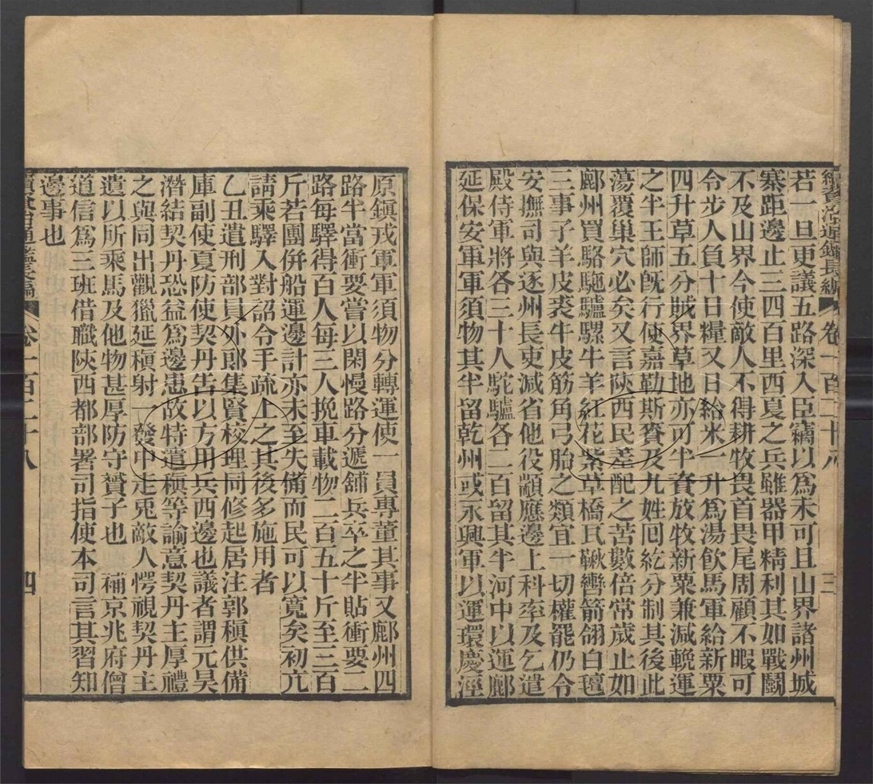 續資治通鑑長編 卷一百二十八 三
若一旦更議五路深入臣竊以為未可且山界諸州城
寨距邊止三四百里西夏之兵雖器甲精利其如戰鬭
不及山界今使敵人不得耕牧畏首畏尾周顧不暇可
令步人負十日糧又日給米一升為湯飲馬軍給新粟
四升草五分賊界草地亦可半資放牧新粟兼減輓運
之半王師既行使嘉勒斯賚及九姓回紇分制其後此
蕩覆巢穴必矣又言陝西民差配之苦數倍常歲止如
鄜州買駱駞驢騾牛羊紅花紫草橋瓦鞦轡箭翎白氊
三事子羊皮裘牛皮筋角弓胎之類宜一切權罷仍令
安撫司與逐州長吏減省他役顓應邊上科率及乞遣
殿侍軍將各三十人駝驢各二百留其半河中以運鄜
延保安軍軍須物其半留乾州或永興軍以運環慶涇
原鎮戎軍軍須物分轉運使一員專董其事又鄜州四
路半當衝要嘗以閑慢路分遞舖兵卒之半貼衝要二
路每驛得百人每三人挽車載物二百五十斤至三百
斤若團併船運邊計亦未至失備而民可以寬矣初亢
請乘驛入對詔令手疏上之其後多施用者
乙丑遣刑部員外郎集賢校理同修起居注郭稹供備
庫副使夏防使契丹告以方用兵西邊也議者謂元昊
潛結契丹恐益為邊患故特遣稹等諭意契丹主厚禮
之與同出觀獵延稹射一發中走兎敵人愕視契丹主
遺以所乘馬及他物甚厚防守贇子也 補京兆府僧
道信為三班借職陝西都部署司指使本司言其習知
邊事也
續資治通鑑長編 卷一百二十八 四